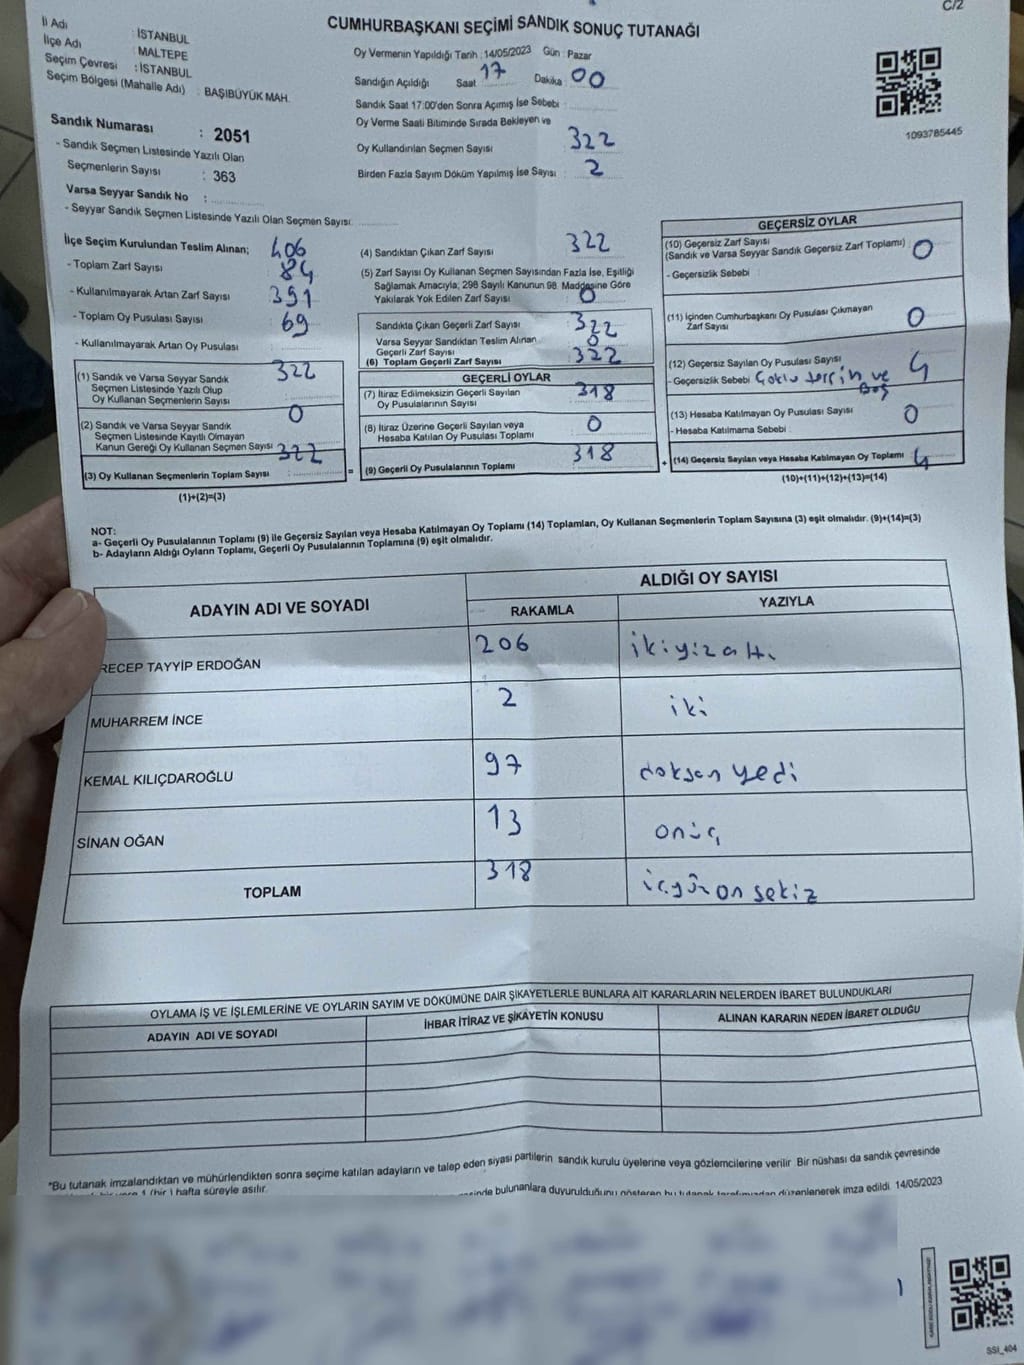 C/2
CUMHURBAŞKANI SEÇİMİ SANDIK SONUÇ TUTANAĞI
İl Adı : İSTANBUL
İlçe Adı : MALTEPE
Seçim Çevresi : İSTANBUL
Seçim Bölgesi (Mahalle Adı) : BAŞIBÜYÜK MAH.
Sandık Numarası : 2051
- Sandık Seçmen Listesinde Yazılı Olan
Seçmenlerin Sayısı : 363
Varsa Seyyar Sandık No :
- Seyyar Sandık Seçmen Listesinde Yazılı Olan Seçmen Sayısı:
Oy Vermenin Yapıldığı Tarih : 14/05/2023 Gün : Pazar
Sandığın Açıldığı Saat 17 Dakika 00
Sandık Saat 17:00'den Sonra Açımış İse Sebebi :
Oy Verme Saati Bitiminde Sırada Bekleyen ve
Oy Kullandırılan Seçmen Sayısı : 322
Birden Fazla Sayım Döküm Yapılmış İse Sayısı : 2
1093785445
İlçe Seçim Kurulundan Teslim Alınan;
- Toplam Zarf Sayısı 406
- Kullanılmayarak Artan Zarf Sayısı 84
- Toplam Oy Pusulası Sayısı 391
- Kullanılmayarak Artan Oy Pusulası 69
(1) Sandık ve Varsa Seyyar Sandık
Seçmen Listesinde Yazılı Olup
Oy Kullanan Seçmenlerin Sayısı 322
(2) Sandık ve Varsa Seyyar Sandık
Seçmen Listesinde Kayıtlı Olmayan
Kanun Gereği Oy Kullanan Seçmen Sayısı 0
(3) Oy Kullanan Seçmenlerin Toplam Sayısı 322
(1)+(2)=(3)
(4) Sandıktan Çıkan Zarf Sayısı 322
(5) Zarf Sayısı Oy Kullanan Seçmen Sayısından Fazla İse, Eşitliği
Sağlamak Amacıyla; 298 Sayılı Kanunun 98. Maddesine Göre
Yakılarak Yok Edilen Zarf Sayısı 0
Sandıkta Çıkan Geçerli Zarf Sayısı 322
Varsa Seyyar Sandıktan Teslim Alınan
Geçerli Zarf Sayısı 0
(6) Toplam Geçerli Zarf Sayısı 322
GEÇERLİ OYLAR
(7) İtiraz Edilmeksizin Geçerli Sayılan
Oy Pusulalarının Sayısı 318
(8) İtiraz Üzerine Geçerli Sayılan veya
Hesaba Katılan Oy Pusulası Toplamı 0
= (9) Geçerli Oy Pusulalarının Toplamı 318
GEÇERSİZ OYLAR
(10) Geçersiz Zarf Sayısı
(Sandık ve Varsa Seyyar Sandık Geçersiz Zarf Toplamı) 0
- Geçersizlik Sebebi :
(11) İçinden Cumhurbaşkanı Oy Pusulası Çıkmayan
Zarf Sayısı 0
(12) Geçersiz Sayılan Oy Pusulası Sayısı 4
- Geçersizlik Sebebi Çoklu tercih ve
Boş
(13) Hesaba Katılmayan Oy Pusulası Sayısı 0
- Hesaba Katılmama Sebebi :
+ (14) Geçersiz Sayılan veya Hesaba Katılmayan Oy Toplamı 4
(10)+(11)+(12)+(13)=(14)
NOT:
a- Geçerli Oy Pusulalarının Toplamı (9) ile Geçersiz Sayılan veya Hesaba Katılmayan Oy Toplamı (14) Toplamları, Oy Kullanan Seçmenlerin Toplam Sayısına (3) eşit olmalıdır. (9)+(14)=(3)
b- Adayların Aldığı Oyların Toplamı, Geçerli Oy Pusulalarının Toplamına (9) eşit olmalıdır.
ADAYIN ADI VE SOYADI ALDIĞI OY SAYISI
RAKAMLA YAZIYLA
RECEP TAYYİP ERDOĞAN 206 ikiyizaltı
MUHARREM İNCE 2 iki
KEMAL KILIÇDAROĞLU 97 doksan yedi
SİNAN OĞAN 13 onüç
TOPLAM 318 on sekiz
OYLAMA İŞ VE İŞLEMLERİNE VE OYLARIN SAYIM VE DÖKÜMÜNE DAİR ŞİKAYETLERLE BUNLARA AİT KARARLARIN NELERDEN İBARET BULUNDUKLARI
ADAYIN ADI VE SOYADI İHBAR İTİRAZ VE ŞİKAYETİN KONUSU ALINAN KARARIN NEDEN İBARET OLDUĞU
*Bu tutanak imzalandıktan ve mühürlendikten sonra seçime katılan adayların ve talep eden siyasi partilerin sandık kurulu üyelerine veya gözlemcilerine verilir Bir nüshası da sandık çevresinde
1 (bir) hafta süreyle asılır.
bulunanlara duyurulduğunu gösteren bu tutanak tarafımızdan düzenlenerek imza edildi. 14/05/2023
SSI_404